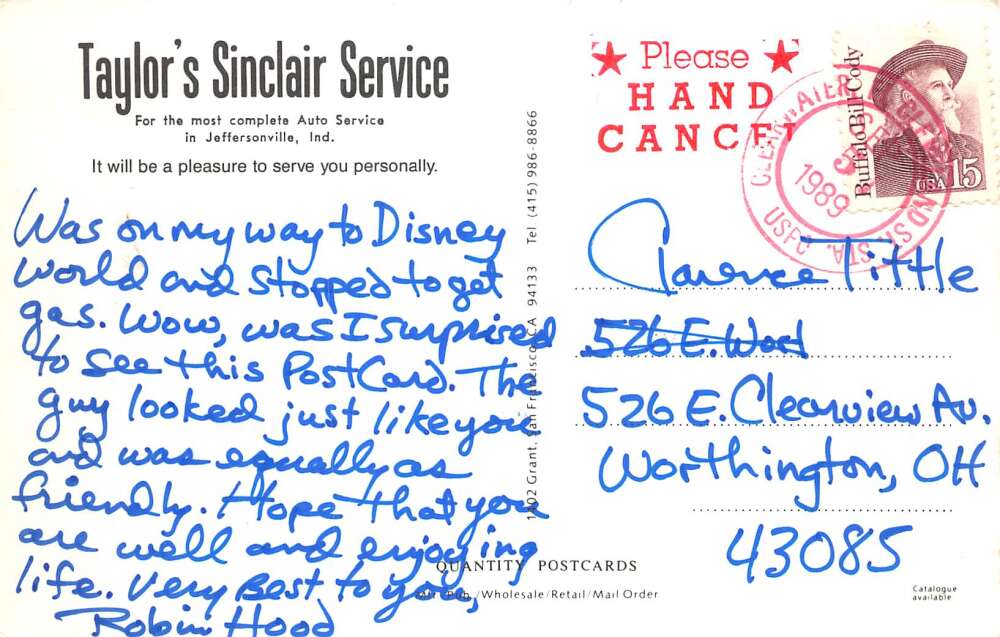 Taylor's Sinclair Service
For the most complete Auto Service
in Jeffersonville, Ind.
It will be a pleasure to serve you personally.
Was on my way to Disney
World and stopped to get
gas. Wow, was I surprised
to see this PostCard. The
guy looked just like you
and was equally as
friendly. Hope that you
are well and enjoying
life. Very Best to you,
Robin Hood
1402 Grant, San Francisco, CA 94133 Tel (415) 986-8866
QUANTITY POSTCARDS
Pub./Wholesale/Retail/Mail Order
Please
HAND
CANCEL
CLEARWATER CLEVELAND ST. STA.
1989
USPO
Buffalo Bill Cody
USA 15
Clarence Tittle
526 E. Wort
526 E. Clearview Av.
Worthington, OH
43085
Catalogue
available